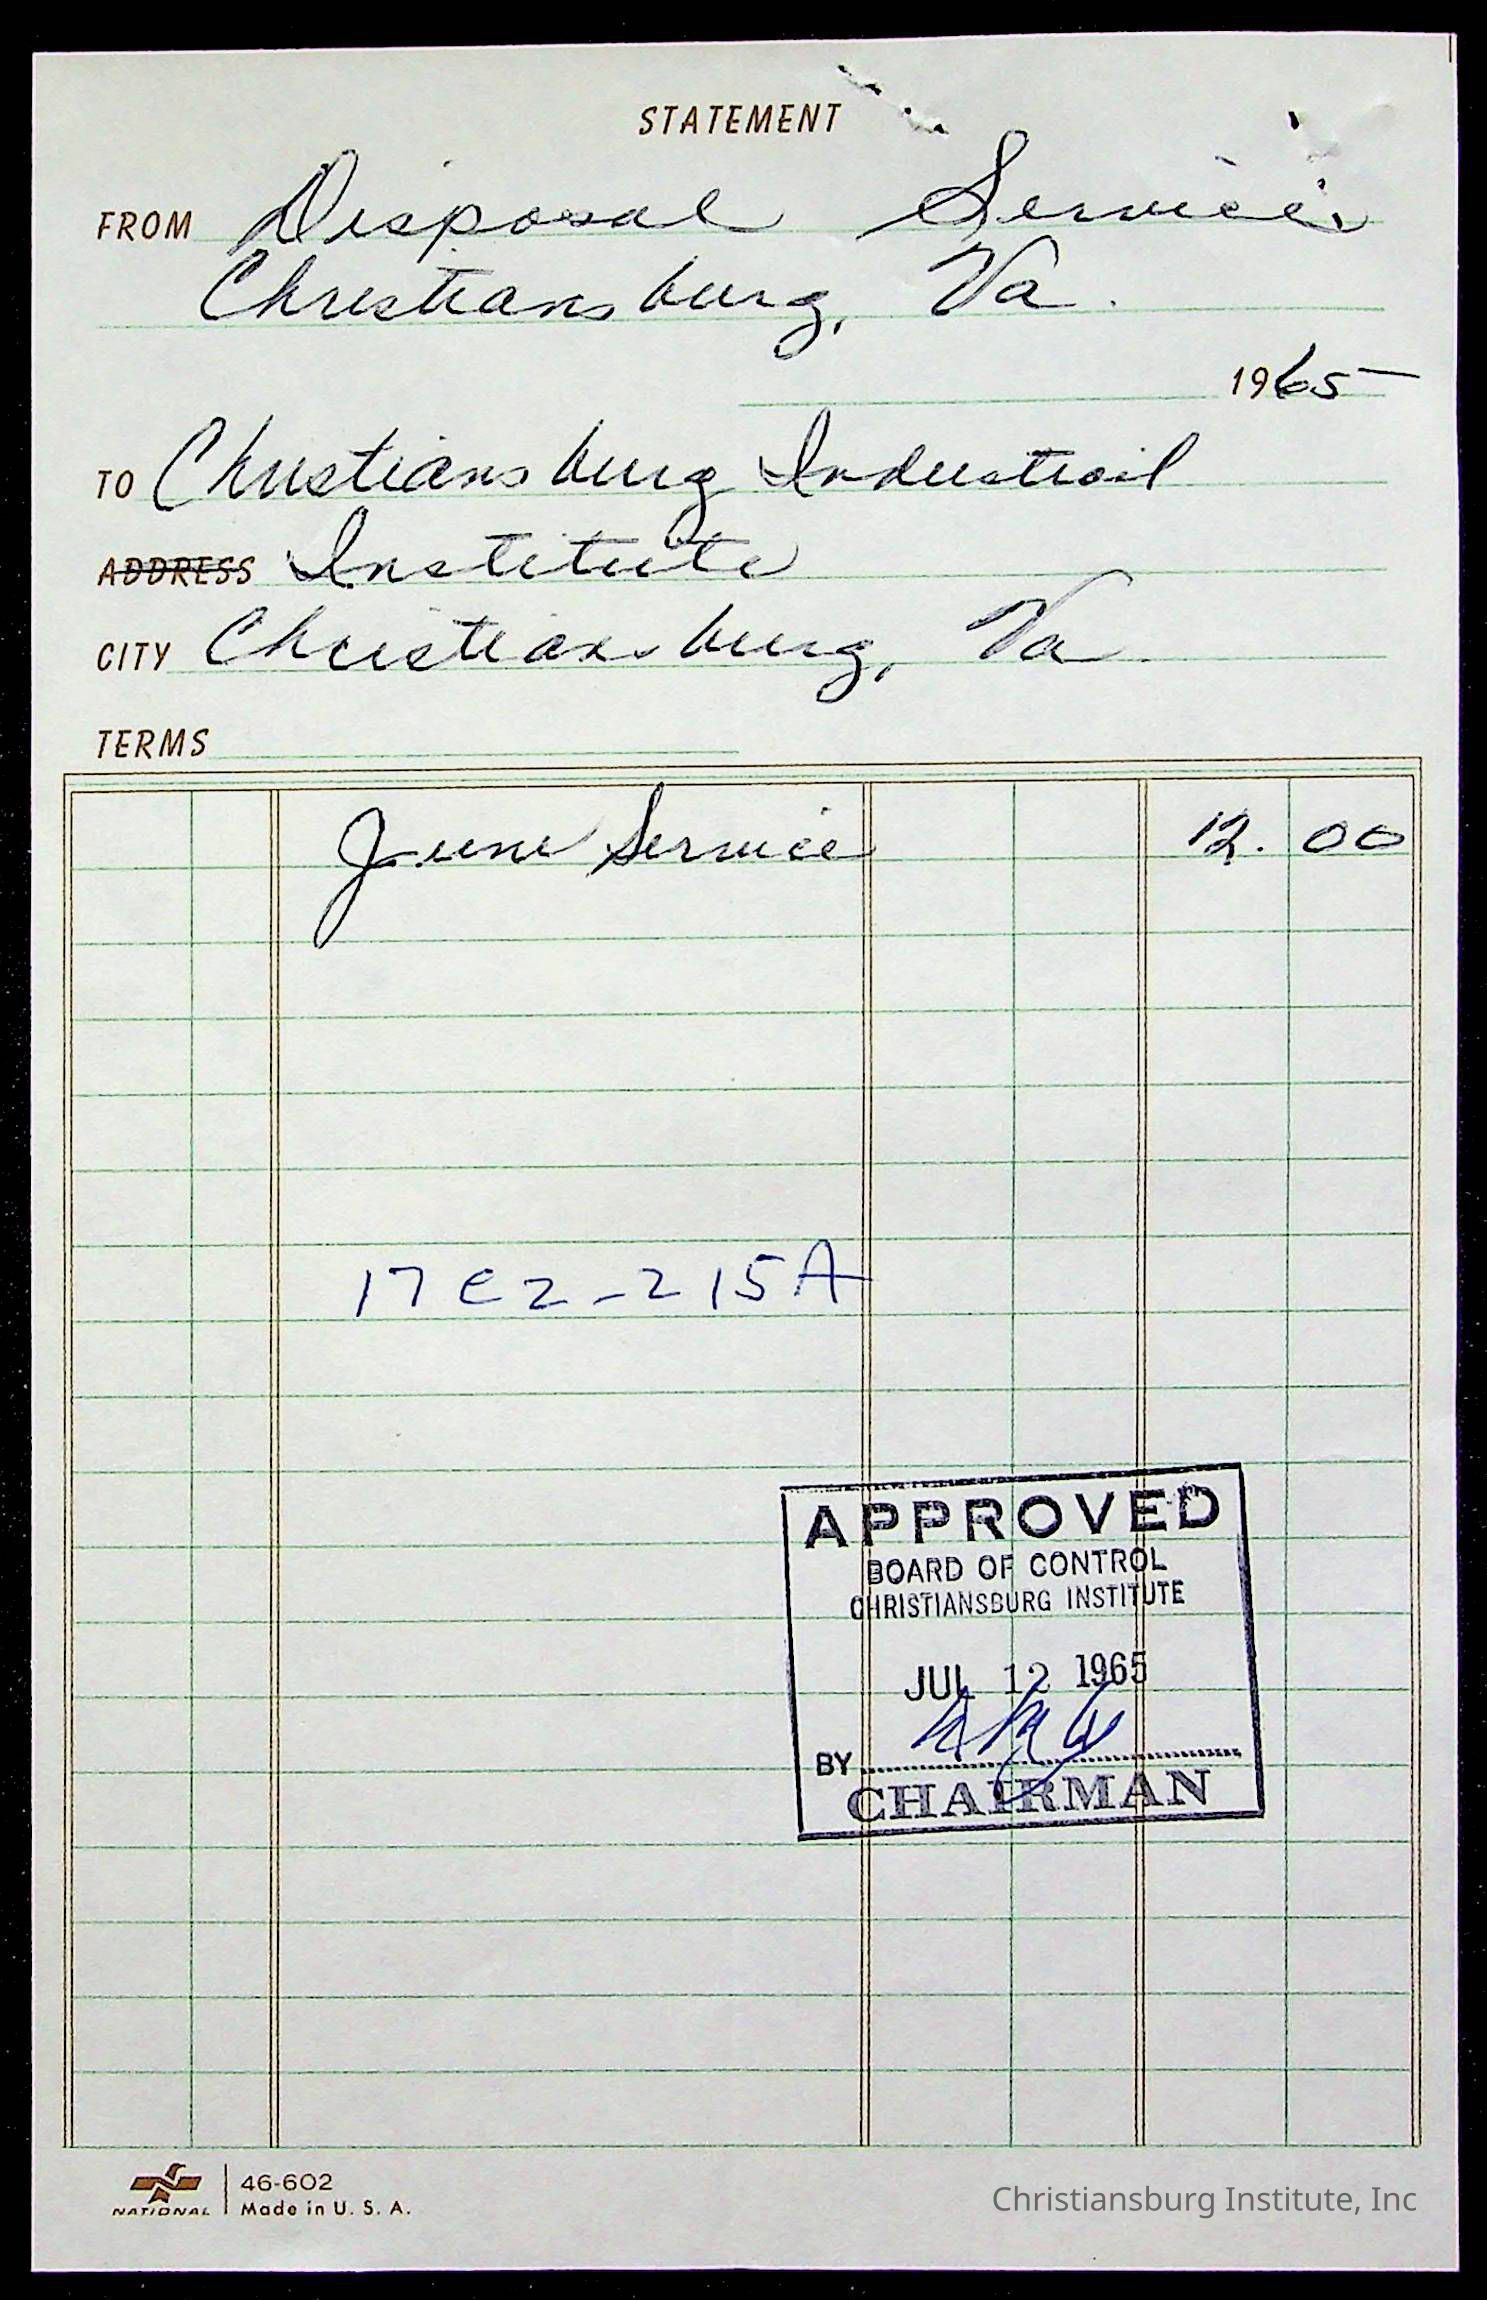 STATEMENT
FROM Disposal Service
Christiansburg, Va.
1965
TO Christiansburg Industrial
ADDRESS Institute
CITY Christiansburg, Va.
TERMS
June Service 12.00
17E2-215A
APPROVED
BOARD OF CONTROL
CHRISTIANSBURG INSTITUTE
JUL 12 1965
BY
CHAIRMAN
NATIONAL
46-602
Made in U. S. A.
Christiansburg Institute, Inc